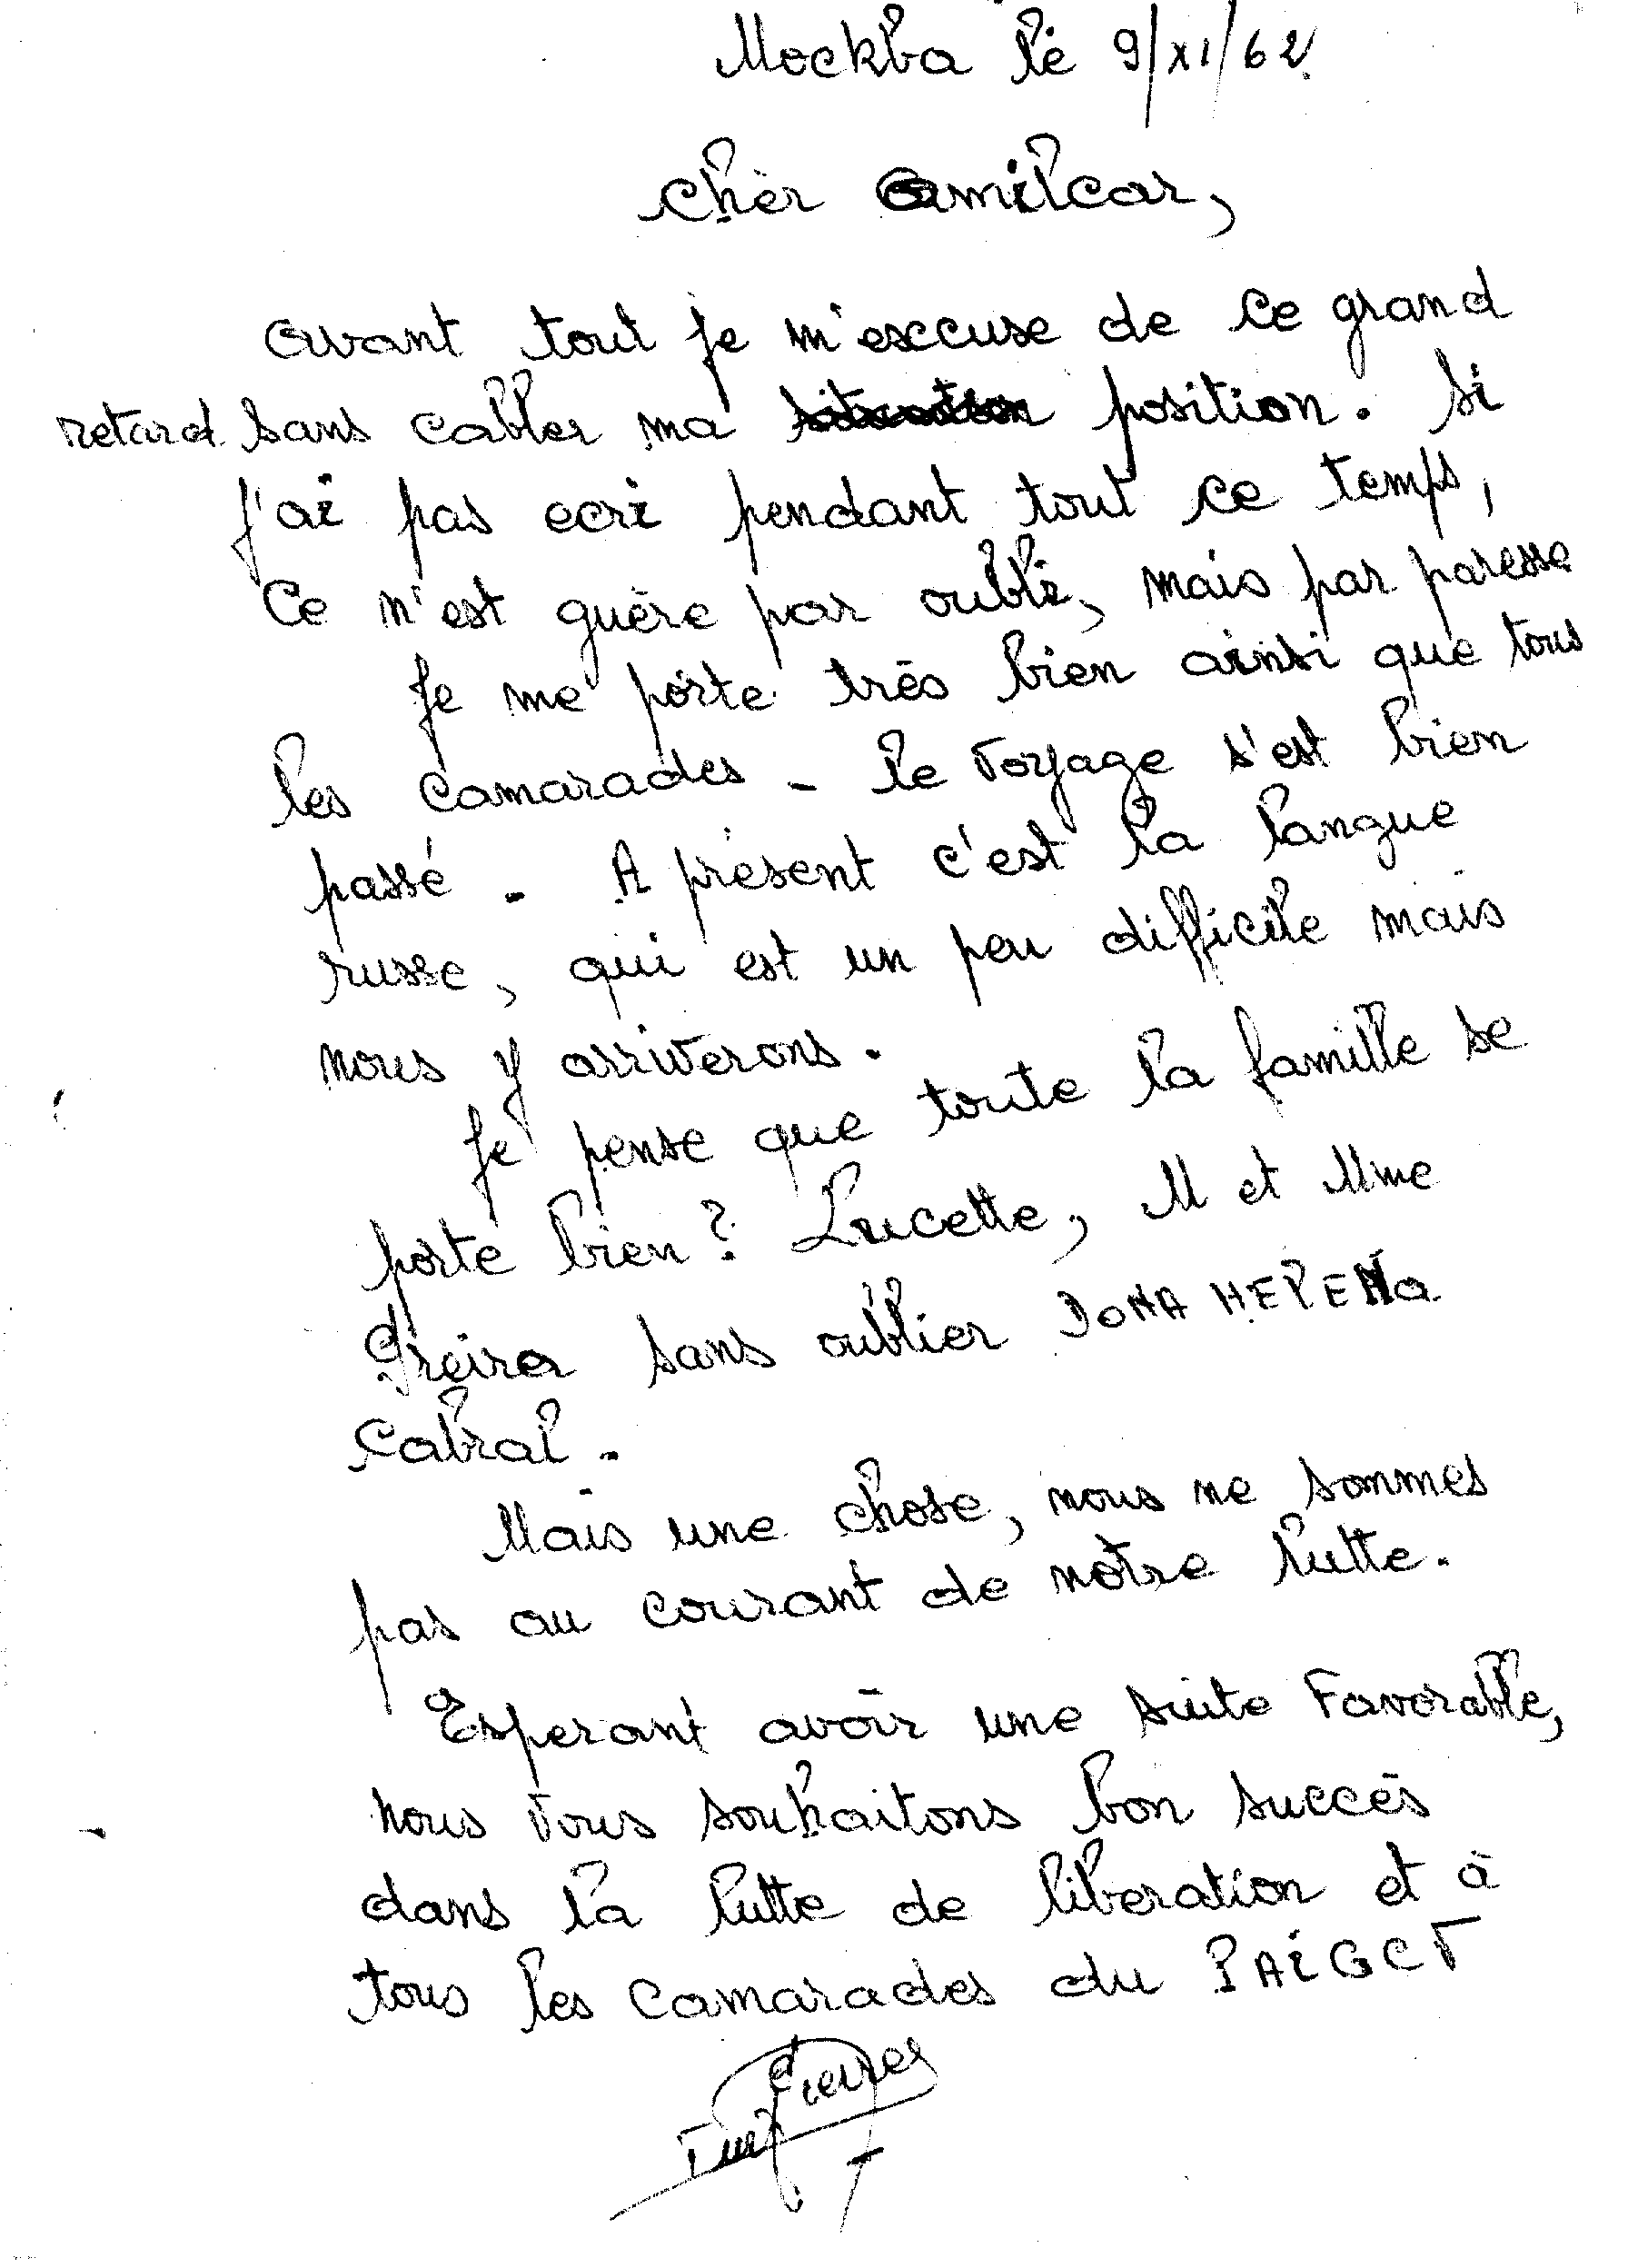 Mockba le 9/XI/62.
Chèr Amilcar,
Avant tout je m'excuse de ce grand
retard sans cabler ma situation position. Si
j'ai pas ecri pendant tout ce temps,
Ce n'est guère par oubli, mais par paresse
Je me porte très bien ainsi que tous
les camarades - le voyage s'est bien
passé - A présent c'est la langue
russe, qui est un peu difficile mais
nous y arriverons.
Je pense que toute la famille se
porte bien? Lucette, M et Mme
Preira sans oublier DONA HELENA
Cabral -
Mais une chose, nous ne sommes
pas au courant de notre lutte.
Esperant avoir une suite Favorable,
nous vous souhaitons bon succès
dans la lutte de liberation et à
tous les camarades du PAIGCV